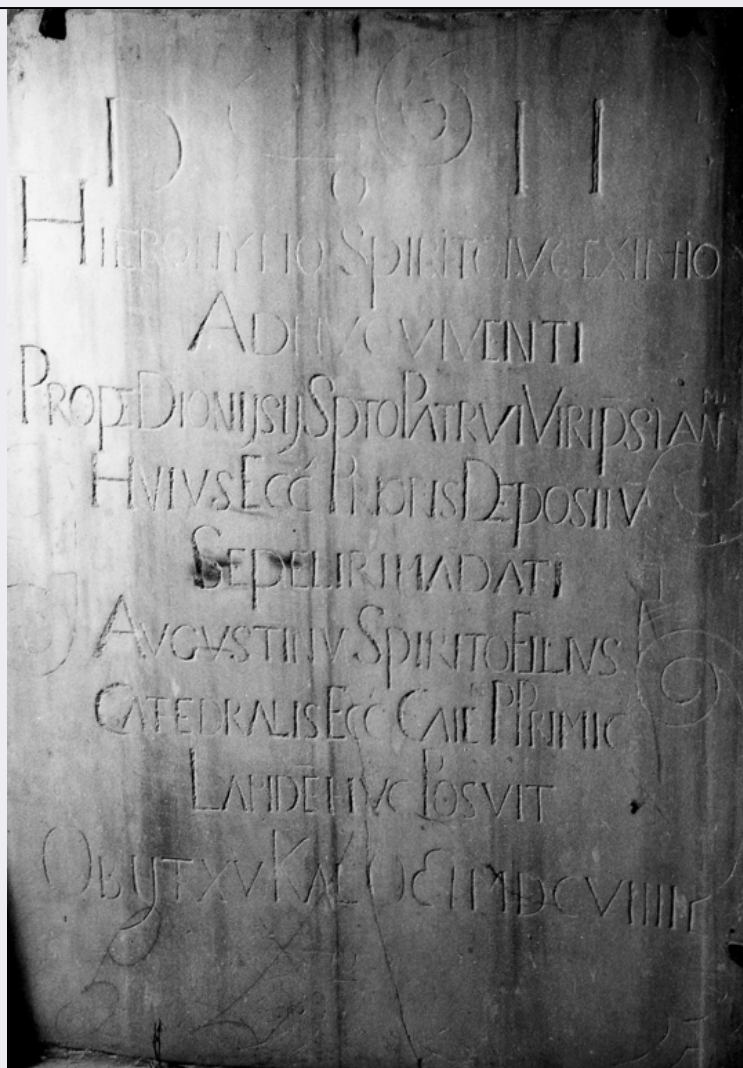 D O M
HIERONYMO SPIRITO IVC EXIMIO
ADHVC VIVENTI
PROPE DIONIJSIJ SPTO PATRVI VIRI PSTANMI
HVIVS ECC PRIORIS DEPOSITV
SEPELIRI MADATI
AVGVSTINV SPIRITO FILIVS
CATEDRALIS ECC PRIMIC
LAPIDE HVC POSVIT
OBIJT XV KAL MDCVIIII